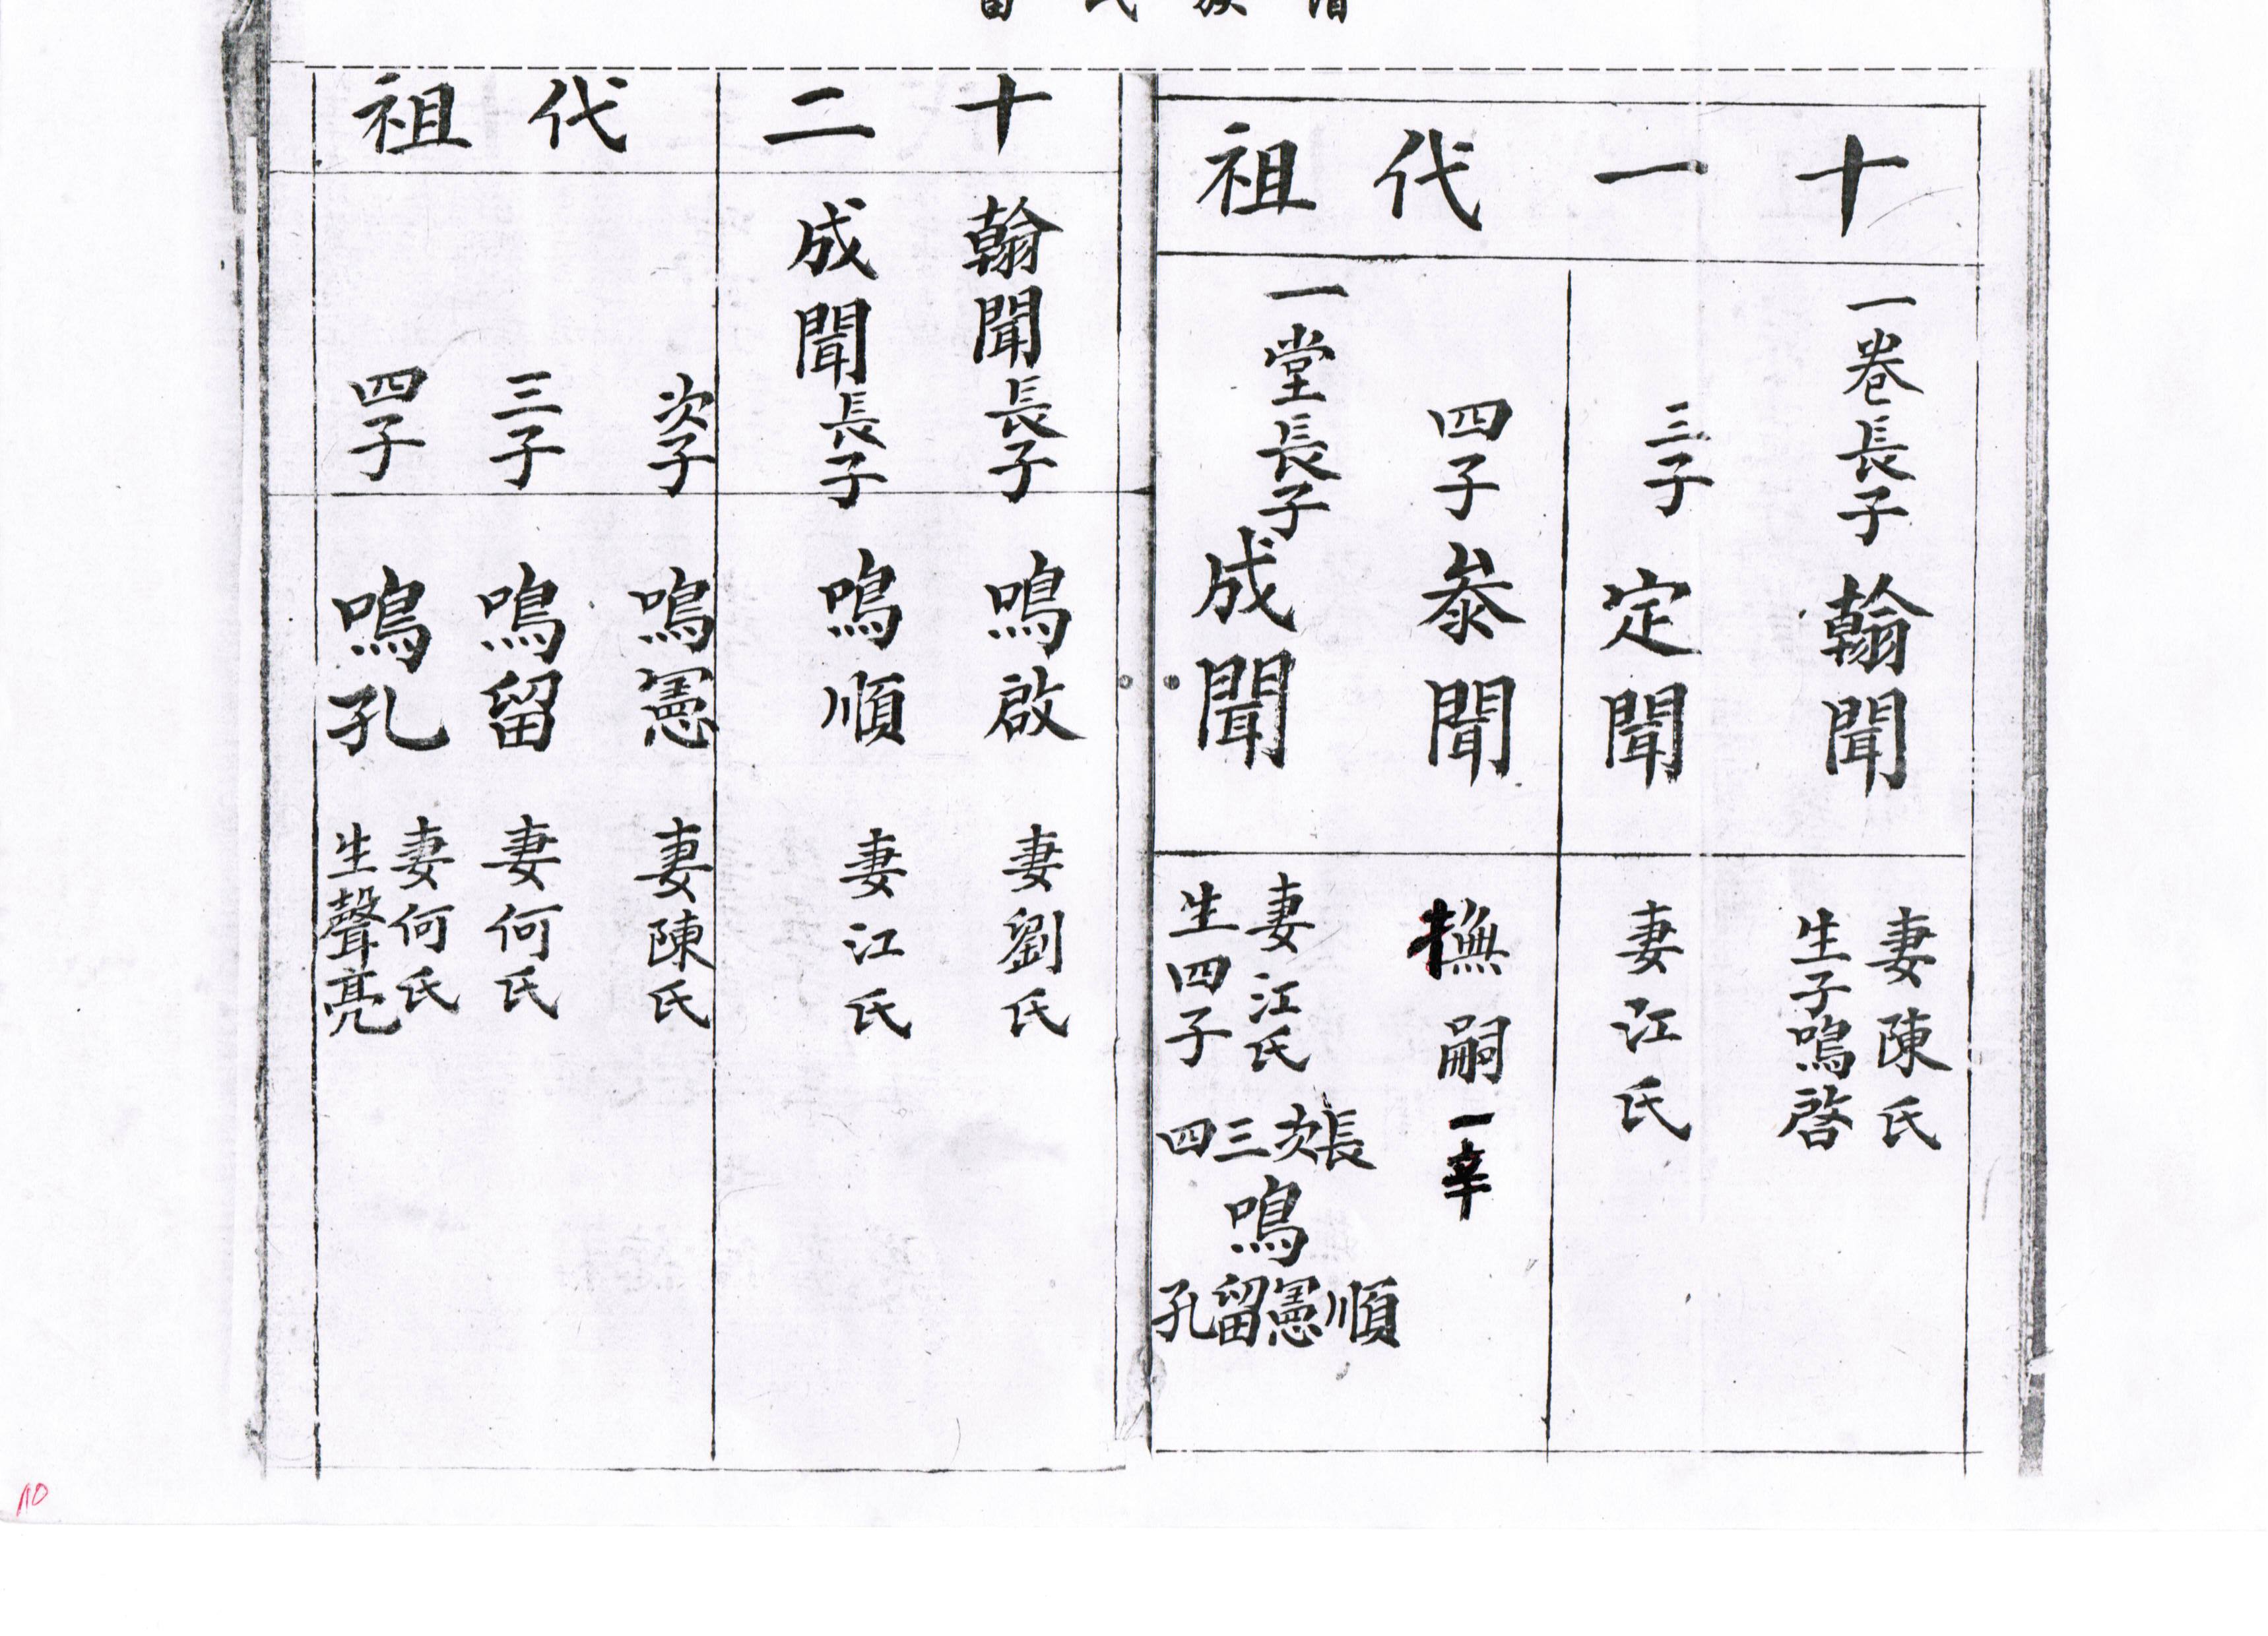 十一代祖
一卷長子翰聞
妻陳氏
生子鳴啓
三子定聞
妻江氏
四子叅聞
撫嗣一辛
一堂長子成聞
妻江氏
生四子
長次三四
鳴
順憲留孔
十二代祖
翰聞長子鳴啟
妻劉氏
成聞長子鳴順
妻江氏
次子鳴憲
妻陳氏
三子鳴留
妻何氏
四子鳴孔
妻何氏
生聲亮
10